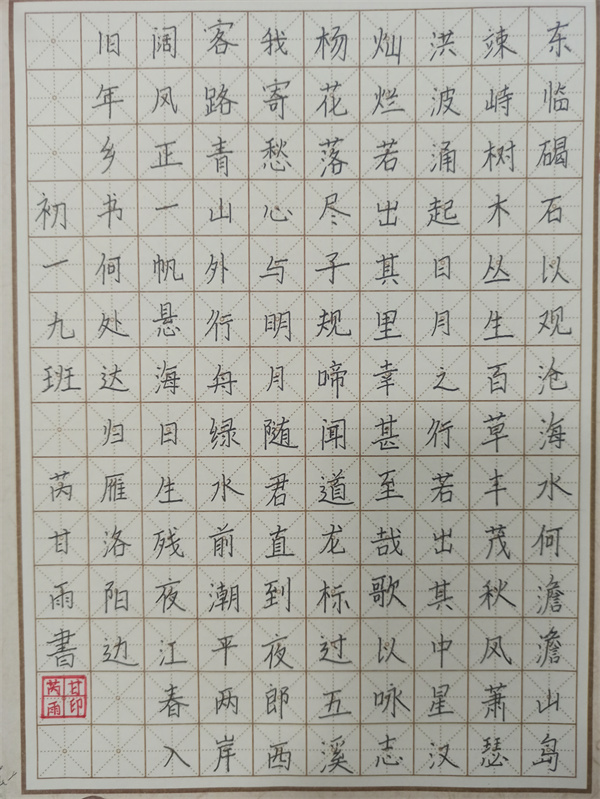 东临碣石以观沧海水何澹澹山岛
竦峙树木丛生百草丰茂秋风萧瑟
洪波涌起日月之行若出其中星汉
灿烂若出其里幸甚至哉歌以咏志
杨花落尽子规啼闻道龙标过五溪
我寄愁心与明月随君直到夜郎西
客路青山外行舟绿水前潮平两岸
阔风正一帆悬海日生残夜江春入
旧年乡书何处达归雁洛阳边
初一九班 芮甘雨書
芮甘
雨印